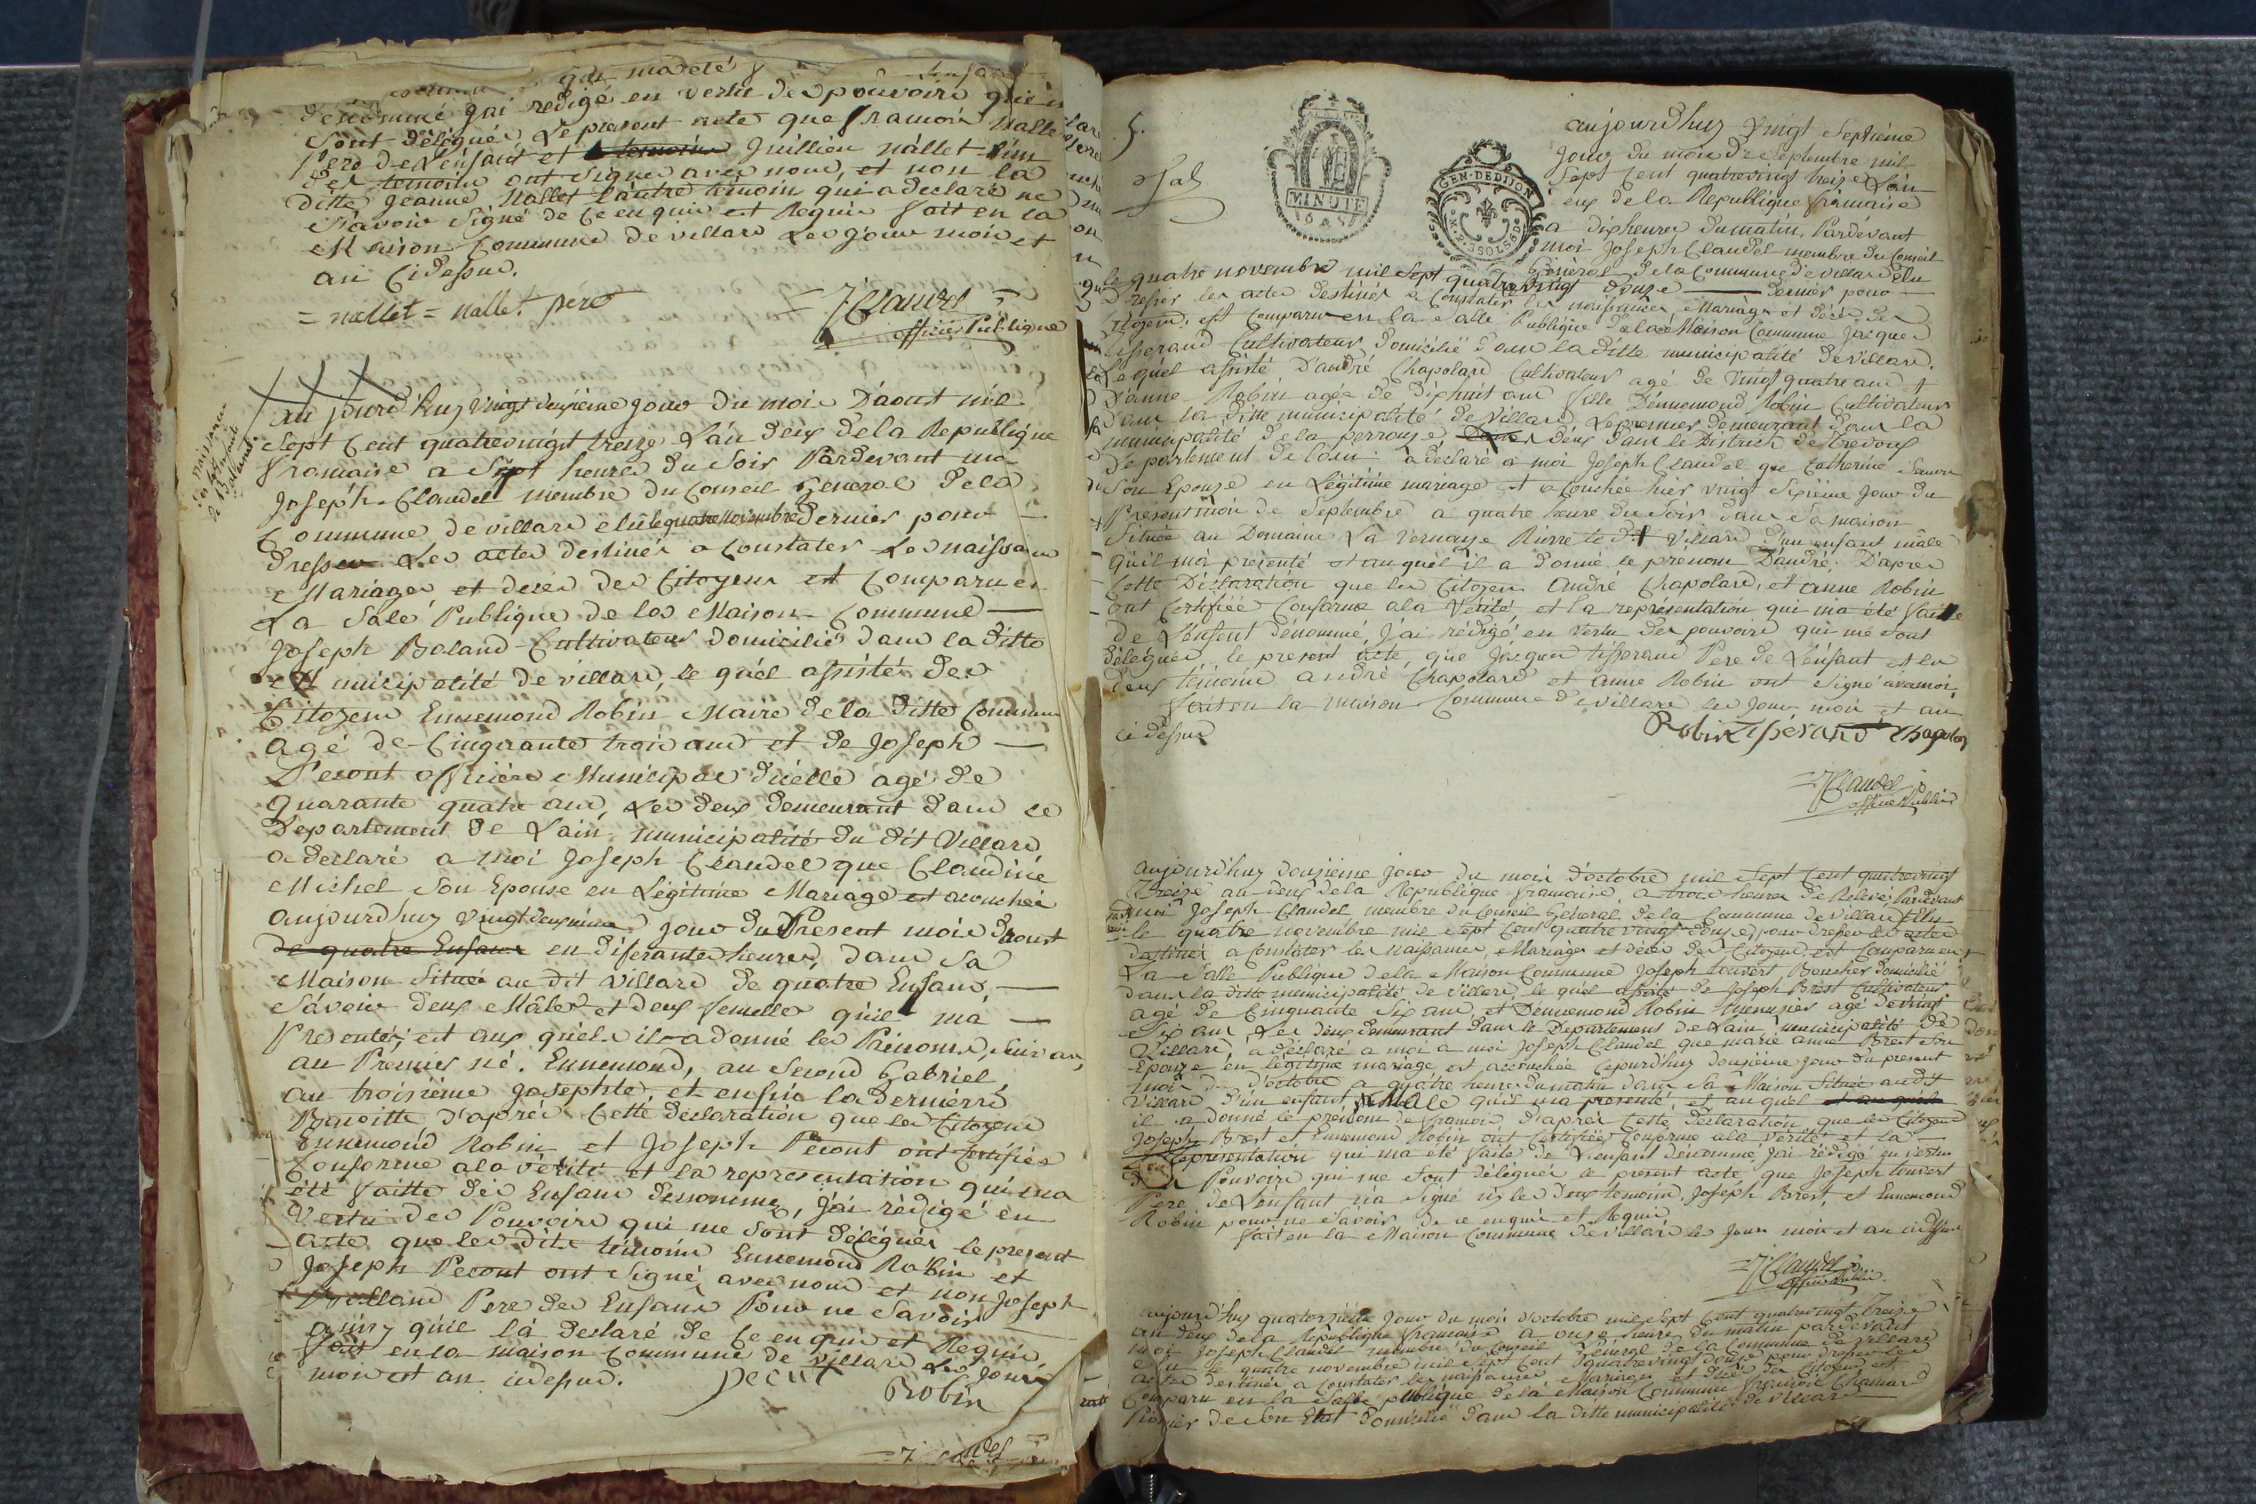 que ma été
dénommé Jai redigé en vertu des pouvoirs qui me
Sont délégués, Le present acte que francois Nallet
Pere de L'enfant et Juillien nallet l'un
des temoins ont Signes avec nous, et non la
ditte Jeanne Nallet l'autre témoin qui a declaré ne
Sçavoir Signé de Ce enquis et Requis fait en la
Maison Commune de villars Les jour mois et
an Ci dessus.
= nallet = nallet pere
= J Claudel
officier Publique
naissance
des 4 Enfants
a Balland
aujourd'huy vingt deuxième jour du mois D'aoust mil
Sept Cent quatrevingt treize L'an deux de la Republique
francaise a Sept heures du Soir Pardevant moi
Joseph Claudel membre du Conseil General de la
Commune de villars elu le quatre novembre dernier pour
dresser Les actes destinés a Constater Les naissances
Mariages et deces des Citoyens est Comparu en
La Sale Publique de la Maison Commune
Joseph Baland Cultivateur domicilié dans la ditte
Municipalité de villars, le quél assisté des
Citoyens Ennemond Robin Maire de la ditte Commune
agé de Cinquante trois ans et de Joseph
Pecout officier Municipal d'icelle agé de
quarante quatre ans, Les deux demeurant dans le
Departement de L'ain municipalité du dit Villars
a declaré a moi Joseph Claudel que Claudine
Michel Son Epouse en Légitime Mariage est acouchée
aujourdhuy vingt deuxieme jour du Present mois daoust
de quatre Enfans en diferantes heures, dans Sa
Maison Située au dit villars de quatre Enfans,
Sçavoir deux Mâles et deux femelles qu'il ma
Presentés, et aux quéls il a donné les Prénoms Suivans,
au Premier né. Ennemond, au Second Gabriel
au troisième Josephte, et enfin la dernierre
Benoitte d'aprés Cette declaration que les Citoyens
Ennemond Robin et Joseph Pecout ont Certifiés
Conforme a la vérité et la representation qui ma
été faitte des Enfans denommés, J'ai rédigé en
Vertu des Pouvoirs qui me Sont délégués le present
acte que les dits témoins Ennemond Robin et
Joseph Pecout ont Signé, avec nous et non Joseph
Balland Pere des Enfans Pour ne Savoir
ainsy qu'il la declaré de Ce enquis et Requis
fait en la maison Commune de villars Les Jour,
mois et an cidessus.
Pecout
Robin
5.
MINUTE
GEN. DE DIJON
aujourdhuy vingt Septième
Jour du mois de Septembre mil
Sept Cent quatrevingt treize L'an
deux de la Republique francaise
a dix heures du matin, Pardevant
moi Joseph Claudel membre du Conseil
General de la Commune de villars élu
le quatre novembre mil Sept quatrevingt douze dernier pour
dresser les actes destinés a Constater les naissances Mariages et décés des
Citoyens, est Comparu en la Salle Publique de la Maison Commune Jacques
tisserand Cultivateur domicilié dans la ditte municipalité de villars.
Le quél assisté D'andré Chapolard Cultivateur agé de vingt quatre ans et
d'anne Robin agée de dixhuit ans fille D'ennemond Robin Cultivateur
dans la ditte municipalité de Villars, Le premier demeurant dans la
municipalité de la perrouse, deux dans le District de Trevoux
departement de Lain. à declaré a moi Joseph Claudel que Catherine
Son Epouse en Légitime mariage est acouchée hier vingt Sixième Jour du
Present mois de Septembre a quatre heure du Soir dans Sa maison
Située au Domaine La vernaye Riere le dit villars d'un enfant mâle
qu'il m'a presenté et auquél il a donné le prenom D'andré. D'apres
Cette Déclaration que les Citoyens André Chapolard, et anne Robin
ont Certifiée Conforme ala Vérité, et la représentation qui ma été faitte
de L'enfant dénommé, J'ai rédigé en vertu des pouvoirs qui me sont
délégués le present acte, que Jacques tisserand Pere de L'enfant et les
deux témoins andré Chapolard et anne Robin ont Signé avec moi,
fait en la maison Commune de villars les jour mois et an
ci dessus
Robin Tisérand Chapolar
= J Claudel
officier Public
aujourdhuy douzième jour du mois d'octobre mil Sept Cent quatrevingt
Treize an deux de la Republique francaise, a trois heures de Relevé Pardevant
moi Joseph Claudel, membre du Conseil General de la Commune de villars Elu
le quatre novembre mil Sept Cent quatre vingt douze, pour dresser les actes
destinés a Constater les Naissances, Mariages et décés des Citoyens, est Comparu en
La Salle Publique de la Maison Commune Joseph Louvert, Boucher domicilié
dans la ditte municipalité de villars, le quél assisté de Joseph Brest Cultivateur
agé de Cinquante Six ans, et Dennemond Robin Menuisier agé de vingt
Six ans, Les deux demeurant dans le Departement de Lain, municipalité de
Villars, a déclaré a moi a moi Joseph Claudel que marie anne Brest Son
Epouse en légitime mariage est accouchée Cejourd'huy douzième Jour du present
mois d'octobre a quatre heures du matin dans Sa Maison Située au dit
Villars d'un enfant Mâle qu'il ma presenté, et au quel
il a donné le prénom de francois d'aprés Cette déclaration que les Citoyens
Joseph Brest et Ennemond Robin ont Certifiée Conforme ala vérité et la
representation qui ma été faite de L'enfant dénommé, Jai rédigé en vertu
des Pouvoirs qui me sont délégués le present acte, que Joseph Louvert
Pere de L'enfant n'a Signé ni les deux temoins, Joseph Brest, et Ennemond
Robin pour ne Sçavoir de ce enquis et Requis
fait en la Maison Commune de villars le Jour mois et an cidessus
= J Claudel
officier Public
aujourd'huy quatorzième Jour du mois doctobre mil Sept Cent quatrevingt Treize
an deux de la Republique francaise a onze heures du matin pardevant
moi Joseph Claudel membre du Conseil General de la Commune de villars
elu le quatre novembre mil Sept Cent quatrevingt douze pour dresser les
actes destinés a Constater les naissances, Mariages et décés des Citoyens, est
Comparu en la Salle publique de la Maison Commune francois Chamard
de Son Etat domicilié dans la ditte municipalité de villars